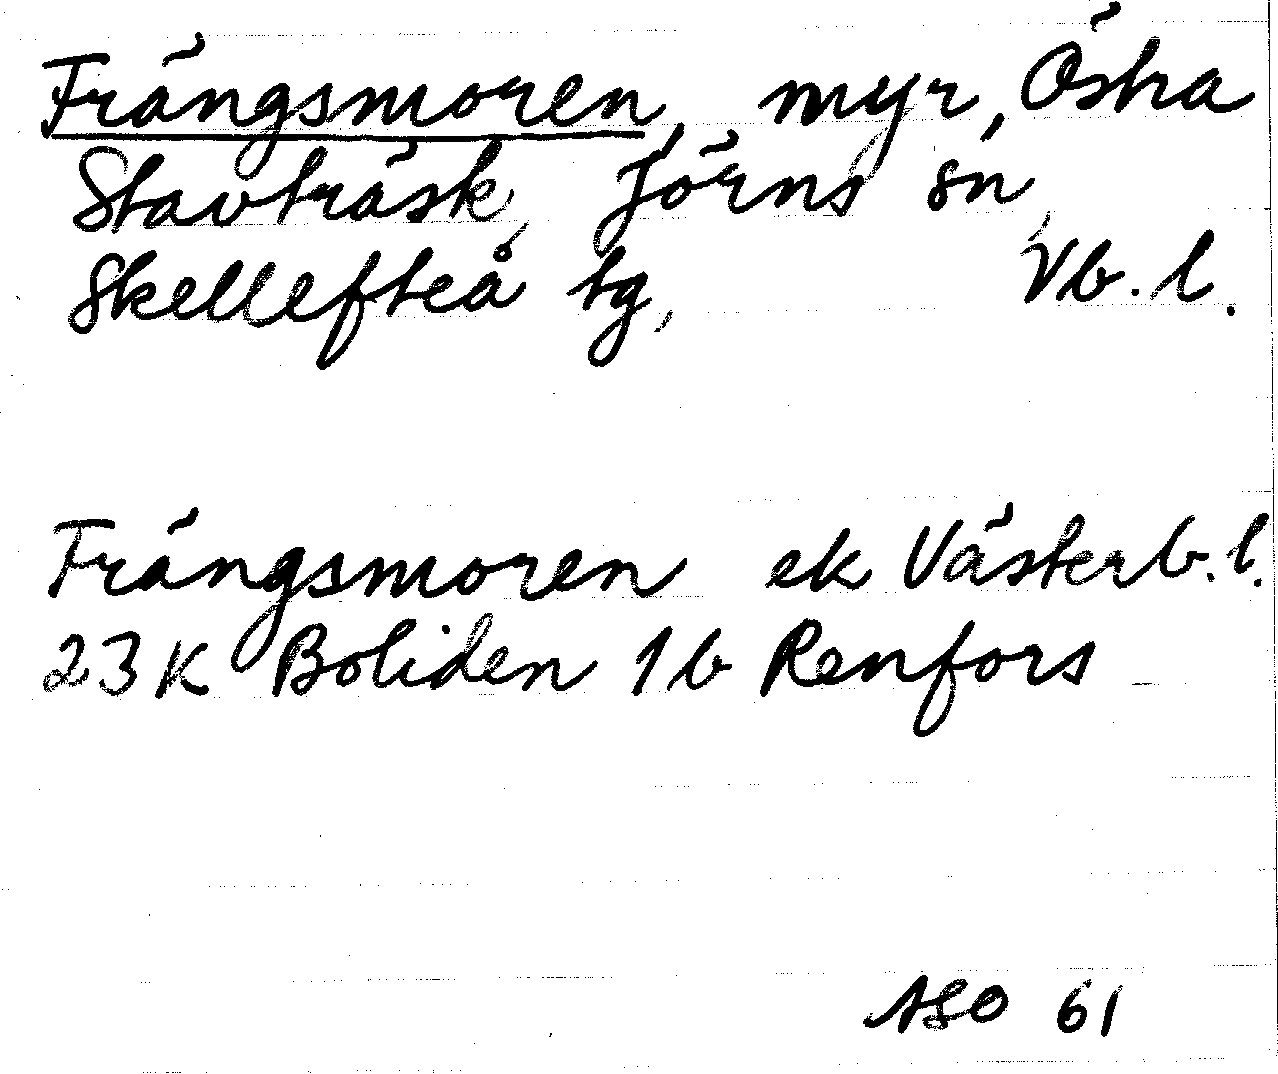 Frängsmoren, myr, Östra
Stavträsk, Jörns sn,
Skellefteå tg, Vb. l.
Frängsmoren ek Västerb. l.
23 K Boliden 1 b Renfors
ASO 61